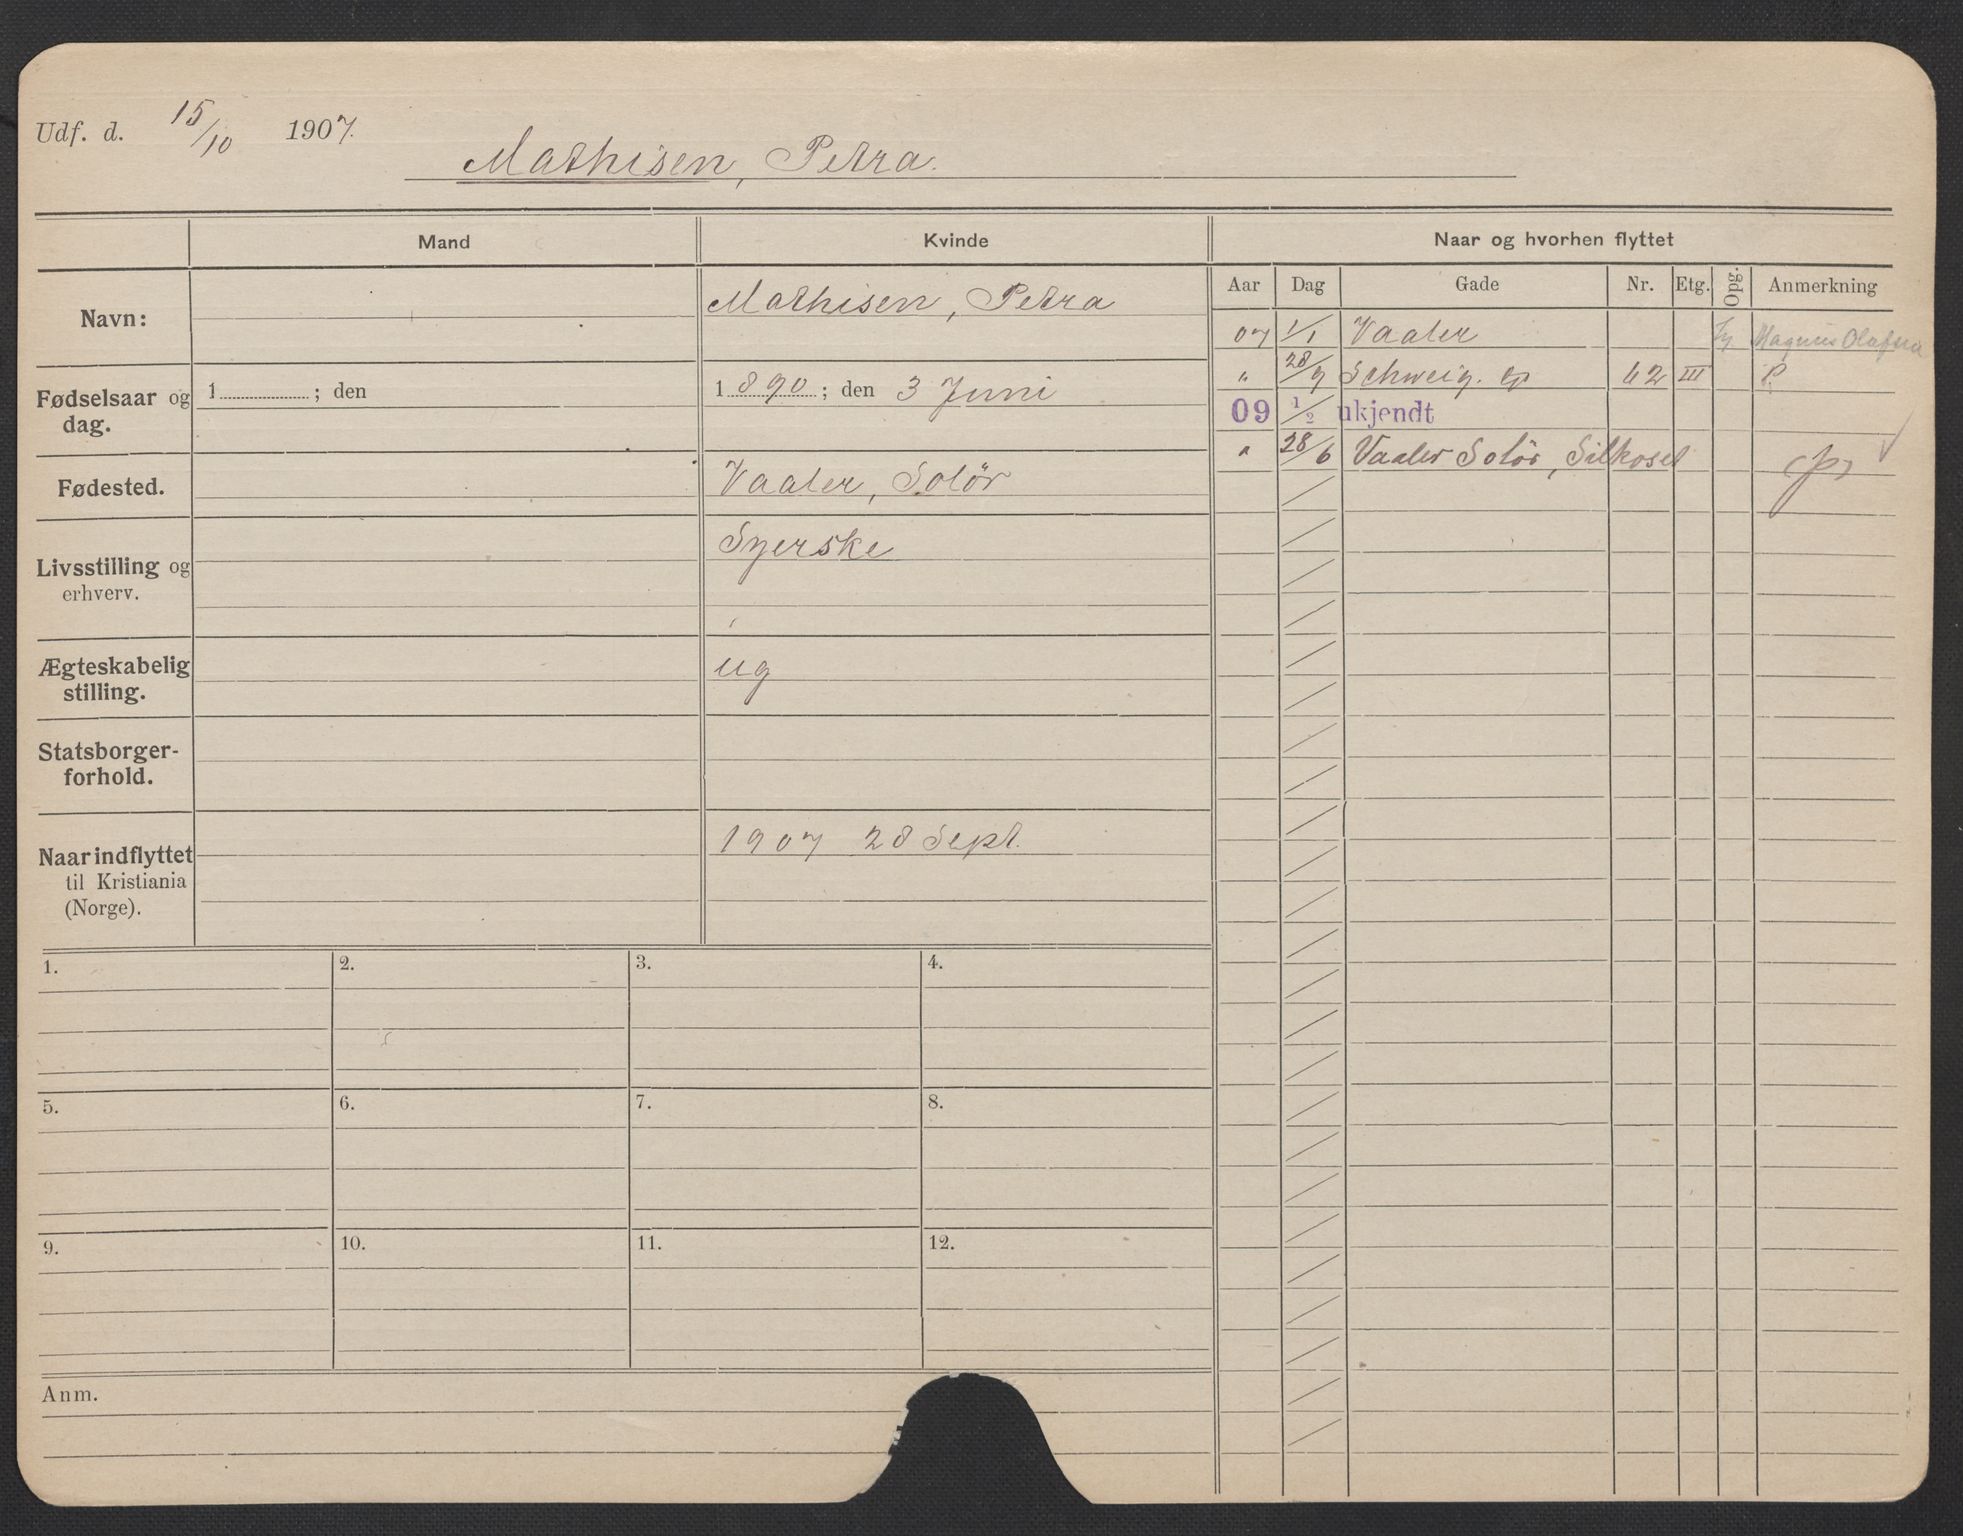 Udf. d. 15/10 1907.
Mathisen, Petra.
Mand Kvinde Naar og hvorhen flyttet
Aar Dag Gade Nr. Etg. Opg. Anmerkning
Navn: Mathisen, Petra
07 1/1 Vaaler Magnus
" 28/9 Schweig. 62 III P.
Fødselsaar og dag. 1 ; den 1890 ; den 3 Juni
09 1/2 ukjendt
" 28/6 Vaaler Solör, Silkoset (P)
Fødested. Vaaler, Solör
Livsstilling og
erhverv. Syerske
Ægteskabelig
stilling. ug
Statsborger-
forhold.
Naar indflyttet
til Kristiania
(Norge). 1907 28 Sept.
1. 2. 3. 4.
5. 6. 7. 8.
9. 10. 11. 12.
Anm.